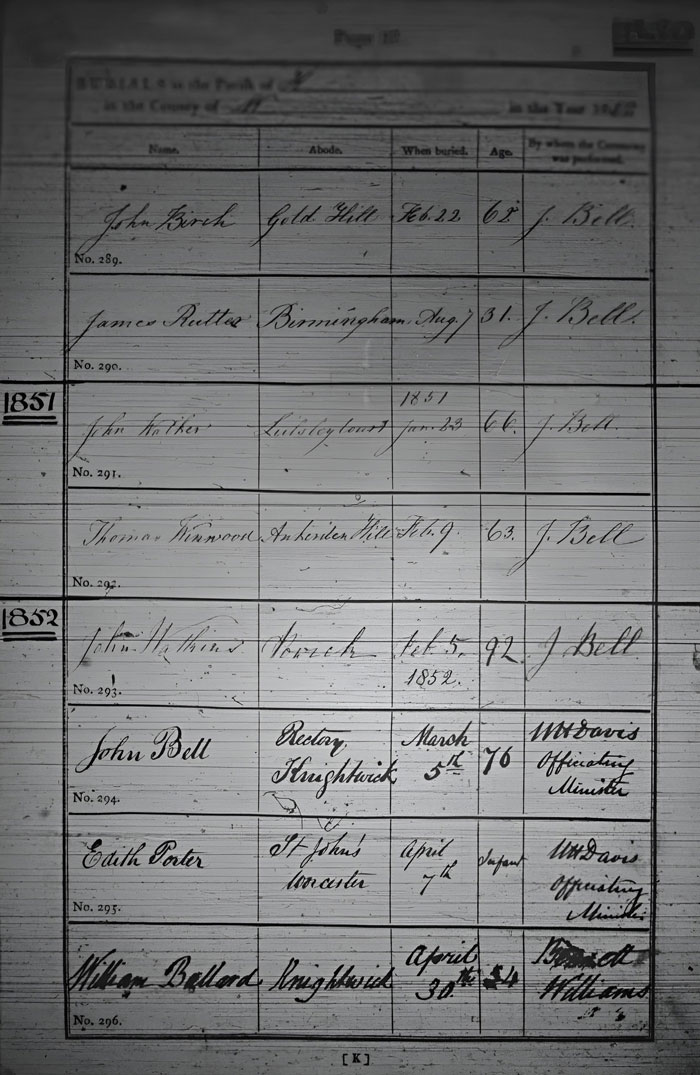 Page
BURIALS in the Parish of
in the County of
in the Year 18
Name. Abode. When buried. Age. By whom the Ceremony was performed.
John Birch Gold Hill Feb. 22 62 J. Bell.
No. 289.
James Rutter Birmingham Aug. 7 31. J. Bell.
No. 290.
1851
1851
John Walker Lulsley Court Jan. 23 66. J. Bell.
No. 291.
Thomas Winwood Ankerden Hill Feb. 9. 63. J. Bell
No. 292.
1852
John Watkins Feb. 5. 92. J Bell
1852.
No. 293.
John Bell Rectory, March 76 WH Davis
Knightwick 5th Officiating
Minister
No. 294.
Edith Porter St John's April Infant WH Davis
Worcester 7th Officiating
Minister
No. 295.
William Ballard Knightwick April
30th Williams
No. 296.
[K]